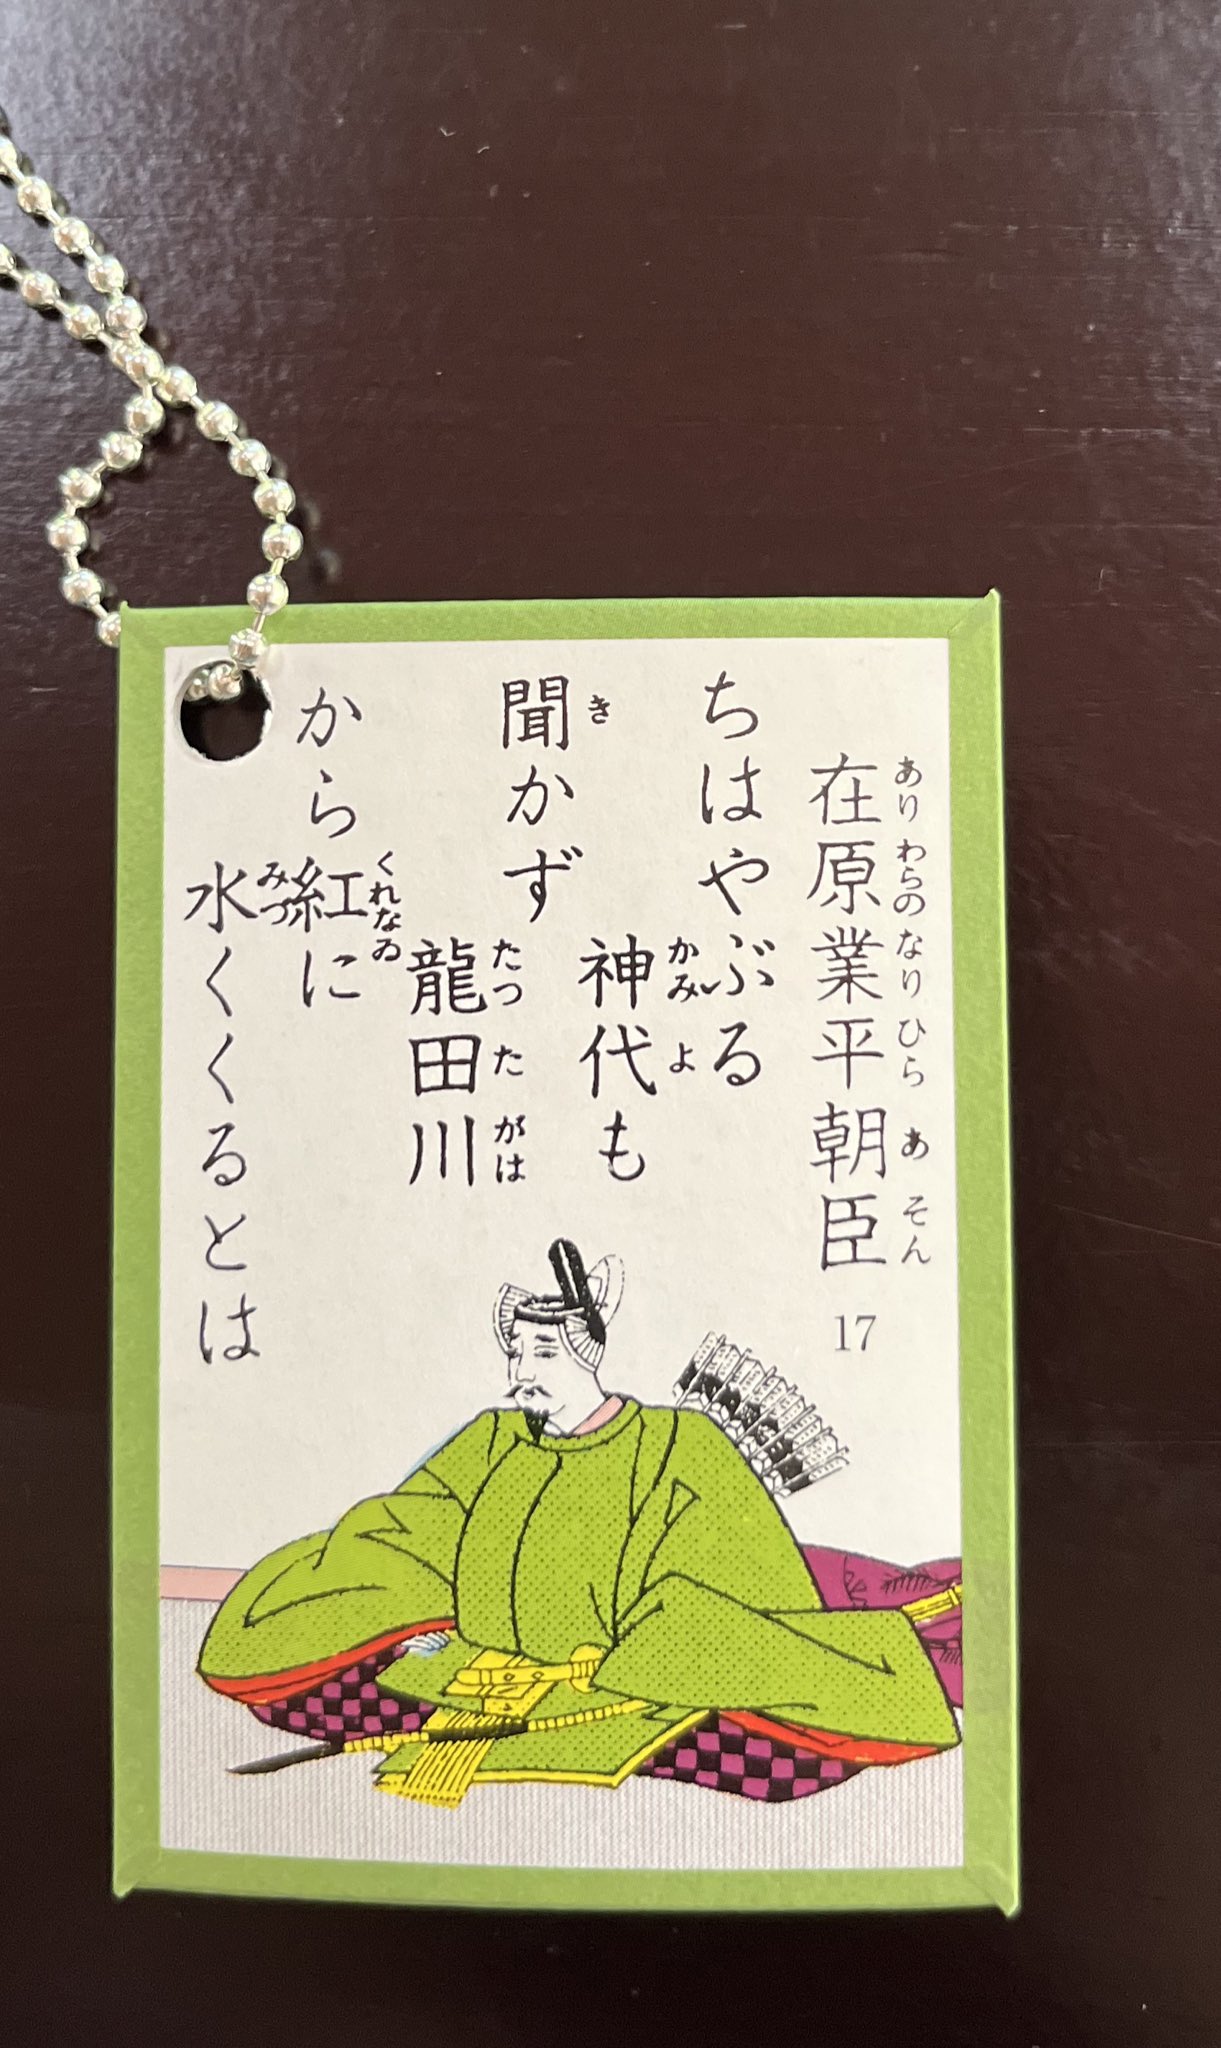 在原業平朝臣
ありわらのなりひらあそん
17
ちはやぶる
神代も
かみよ
聞かず
き
龍田川
たつたがは
から紅に
くれなゐ
水くくるとは
みづ